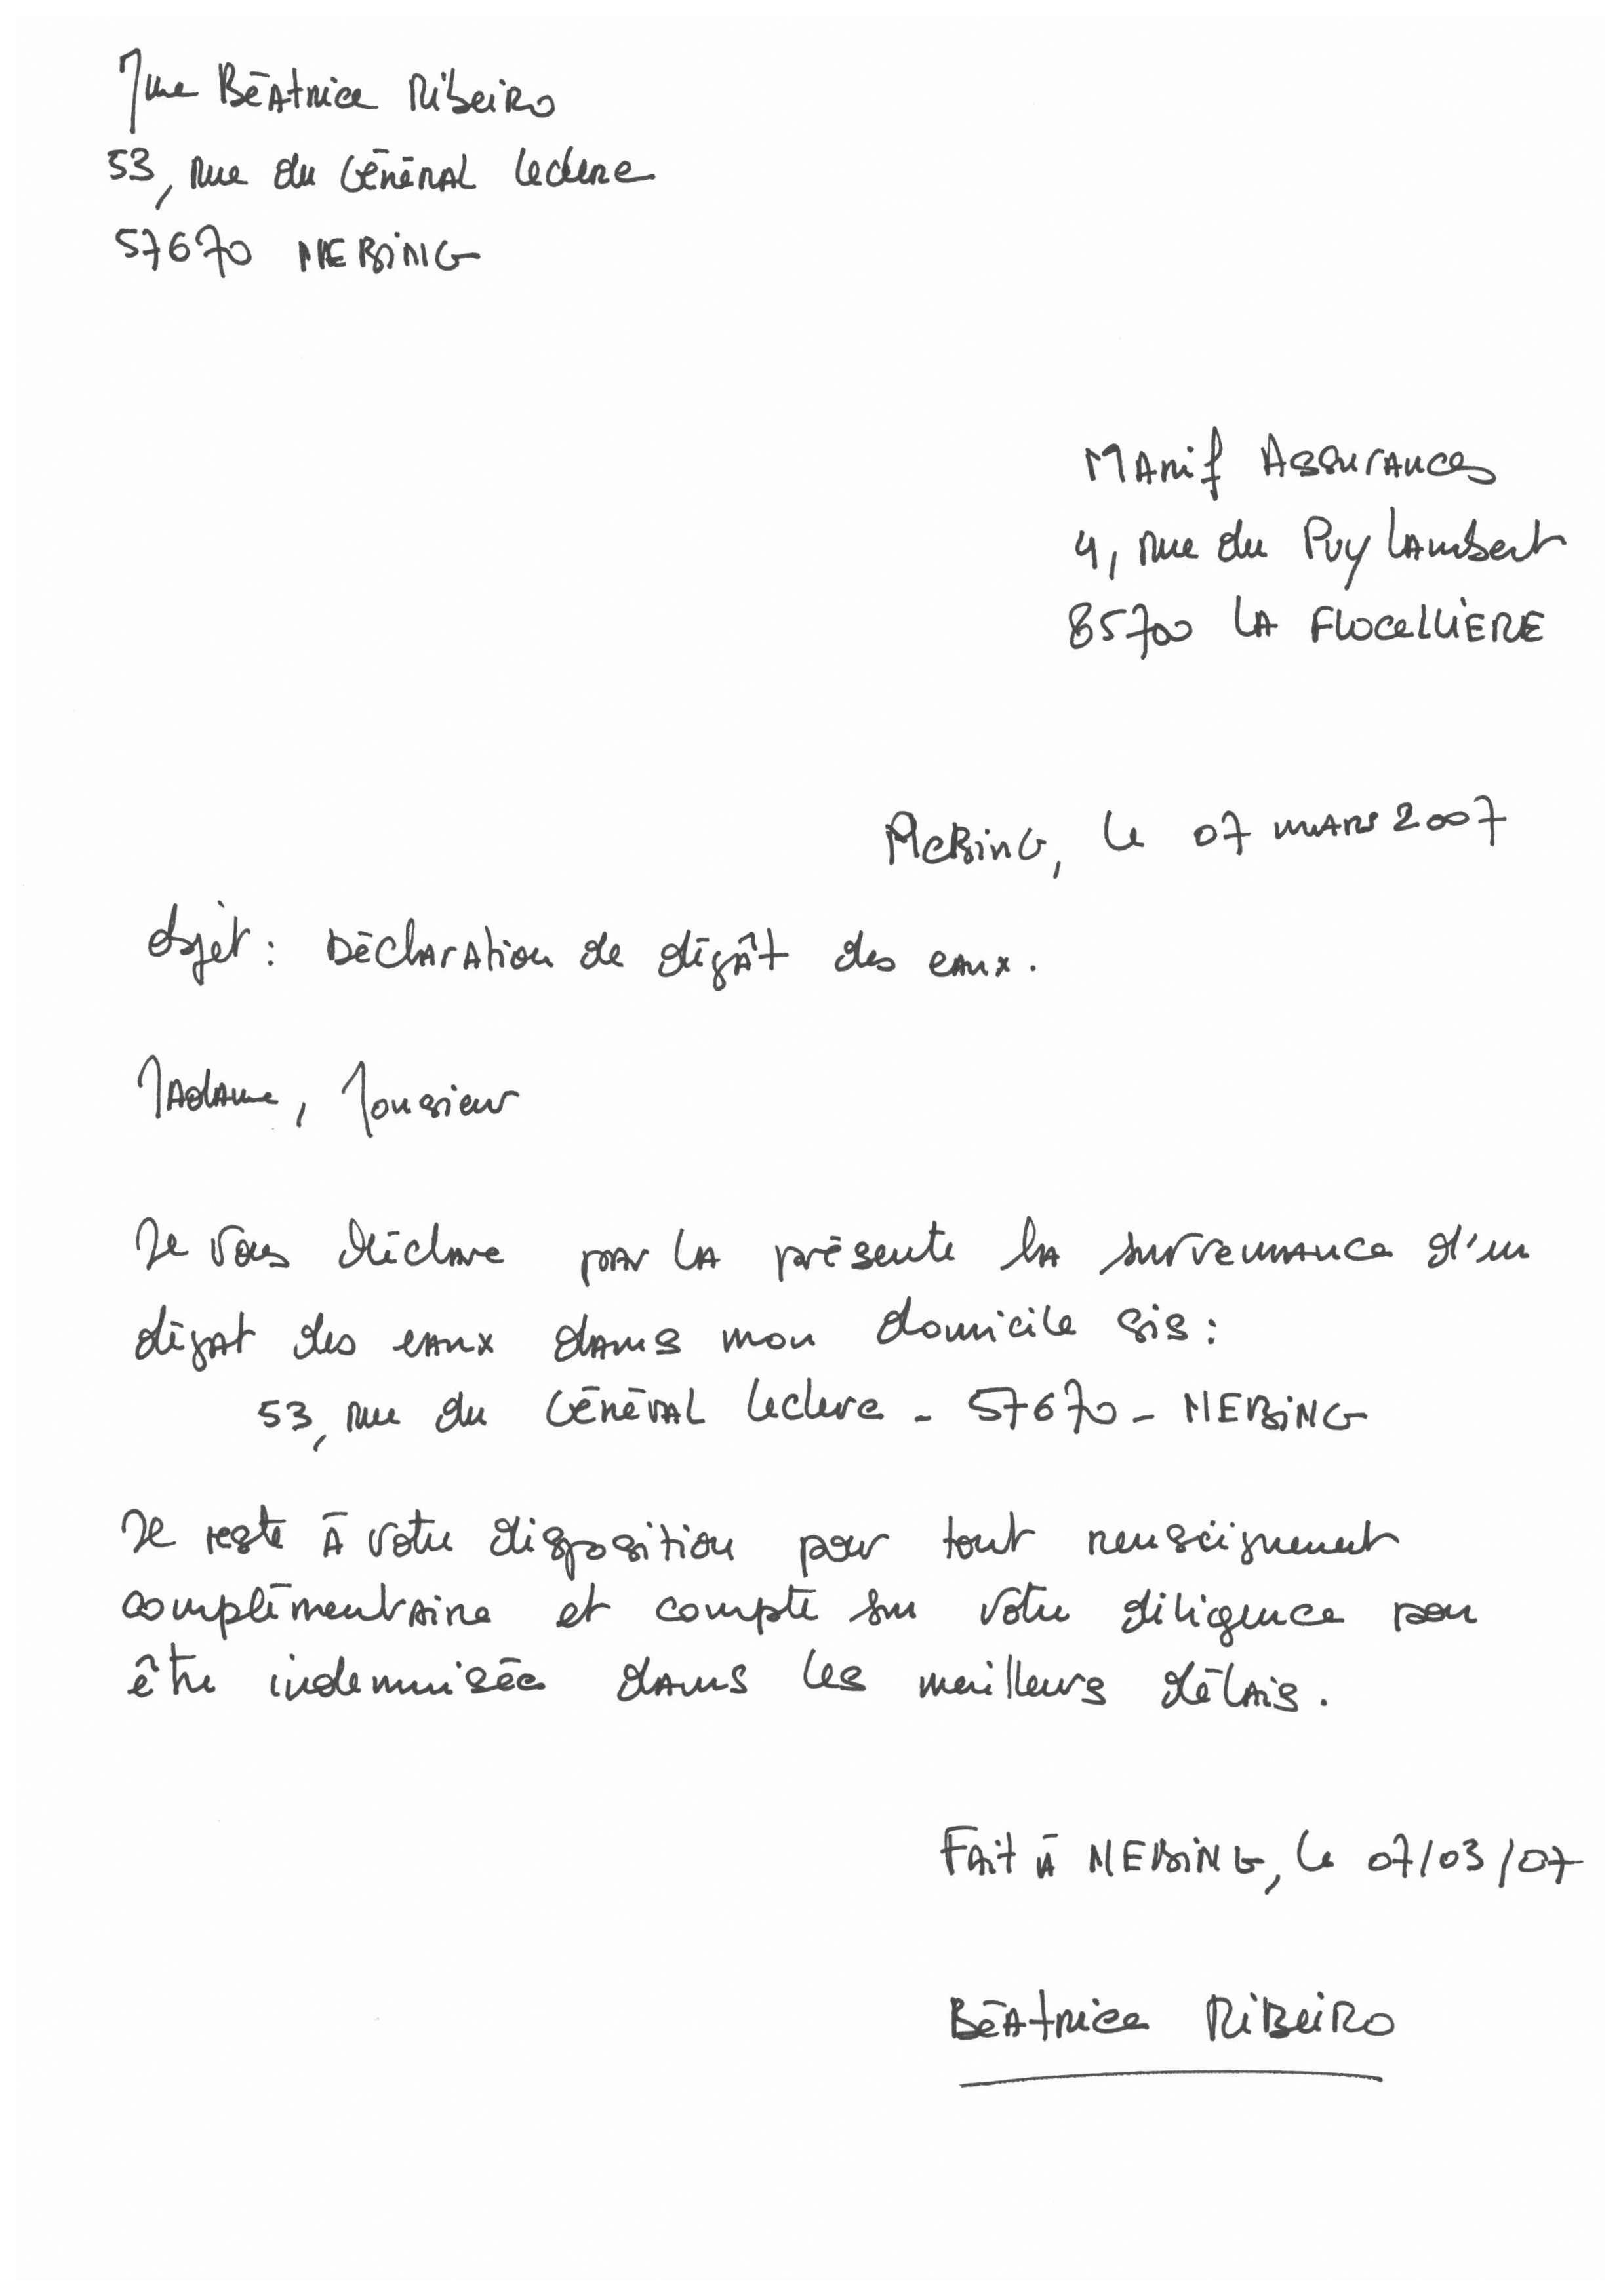 Mme Béatrice Ribeiro
53, rue du Général Leclerc
57670 NEBING
Manif Assurances
4, rue du Puy Lambert
85700 LA FLOCELLIÈRE
Nebing, le 07 mars 2007
Objet : Déclaration de dégât des eaux.
Madame, Monsieur
Je vous déclare par la présente la survenance d'un
dégat des eaux dans mon domicile sis :
53, rue du Général Leclerc - 57670 - NEBING
Je reste à votre disposition pour tout renseignement
complémentaire et compte sur votre diligence pour
être indemnisée dans les meilleurs délais.
Fait à NEBING, le 07/03/07
Béatrice Ribeiro